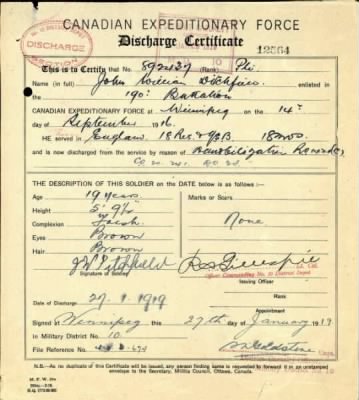 CANADIAN EXPEDITIONARY FORCE
Discharge Certificate
DISCHARGE SECTION
12564
This is to Certify that No. 892427 (Rank) Pte.
Name (in full) John William enlisted in
the 190th Battalion
CANADIAN EXPEDITIONARY FORCE at Winnipeg on the 14th
day of September 1916.
HE served in England
and is now discharged from the service by reason of Demobilization
THE DESCRIPTION OF THIS SOLDIER on the DATE below is as follows:—
Age 19 Years
Height 5' 9½"
Complexion Fresh
Eyes Brown
Hair Brown
Marks or Scars
None
Signature of Soldier
R S Gillespie
Officer Commanding No. 10 District Depot
Issuing Officer
Date of Discharge 27.1.1919
Rank
Appointment
Signed at Winnipeg this 27th day of January 1919
in Military District No. 10
File Reference No.
N.B.—As no duplicate of this Certificate will be issued, any person finding same is requested to forward it in an unstamped
envelope to the Secretary, Militia Council, Ottawa, Canada.